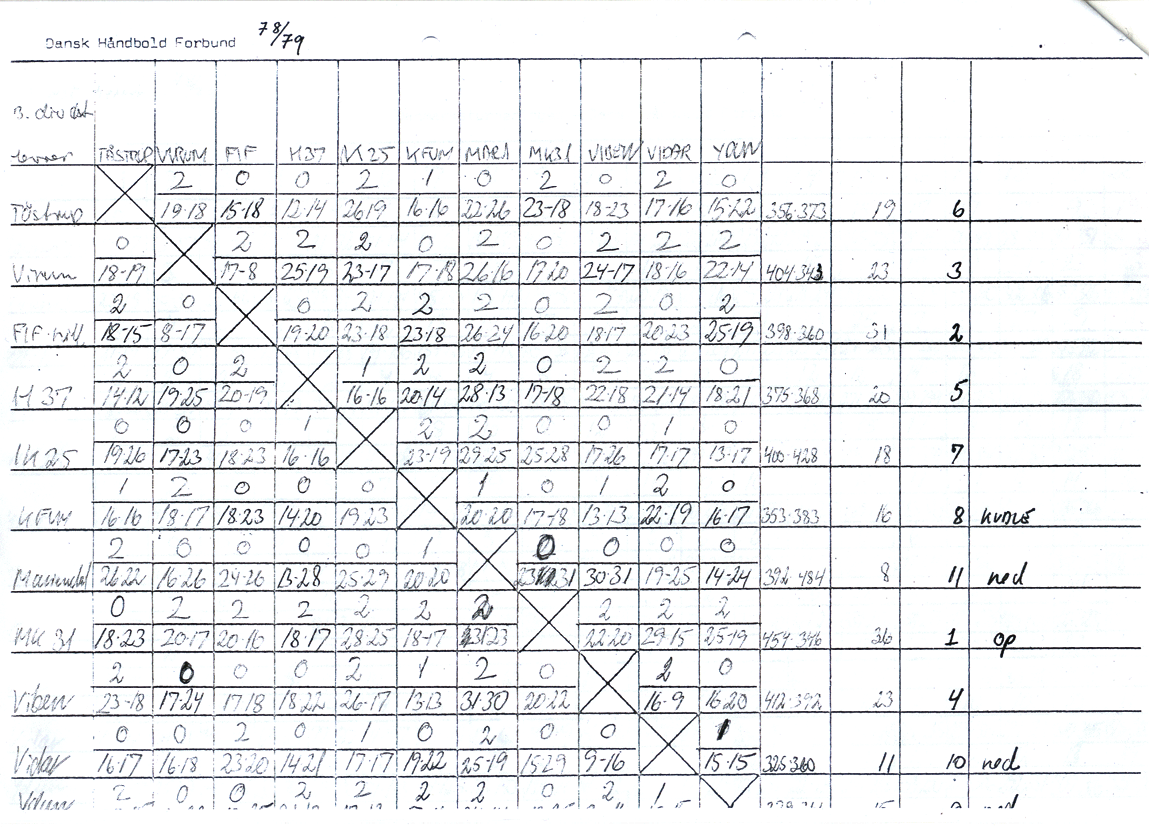 Dansk Håndbold Forbund 78/79
3. div øst
TÅSTRUP VIRUM FIF H37 IK25 KFUM MARI MK31 VIBEN VIDAR
2 0 0 2 1 0 2 0 2 0
Tåstrup 19-18 15-18 12-14 26-19 16-16 22-26 23-18 18-23 17-16 15-22 356-373 19 6
0 2 2 2 0 2 0 2 2 2
Virum 18-19 17-8 25-19 23-17 17-18 26-16 17-20 24-17 18-16 22-14 404-343 23 3
2 0 0 2 2 2 0 2 0 2
FIF 18-15 8-17 19-20 23-18 23-18 26-24 16-20 18-17 20-23 25-19 398-360 31 2
2 0 2 1 2 2 0 2 2 0
H 37 14-12 19-25 20-19 16-16 20-14 28-13 17-18 22-18 21-14 18-21 375-368 20 5
0 0 0 1 2 2 0 0 1 0
IK 25 19-26 17-23 18-23 16-16 23-19 29-25 25-28 17-26 17-17 13-17 400-428 18 7
1 2 0 0 0 1 0 1 2 0
KFUM 16-16 18-17 18-23 14-20 19-23 20-20 17-18 13-13 22-19 16-17 353-383 16 8
2 0 0 0 0 1 0 0 0 0
Mariendal 26-22 16-26 24-26 13-28 25-29 20-20 30-31 19-25 14-24 392-484 8 11 ned
0 2 2 2 2 2 2 2 2 2
MK 31 18-23 20-17 20-16 18-17 28-25 18-17 22-20 29-15 25-19 454-346 36 1 op
2 0 0 0 2 1 2 0 2 0
Viben 23-18 17-24 17-18 18-22 26-17 13-13 31-30 20-22 16-9 16-20 412-392 23 4
0 0 2 0 1 0 2 0 0 1
Vidar 16-17 16-18 23-20 14-21 17-17 19-22 25-19 15-29 9-16 15-15 325-360 11 10 ned
2 0 0 2 2 2 2 0 2 1